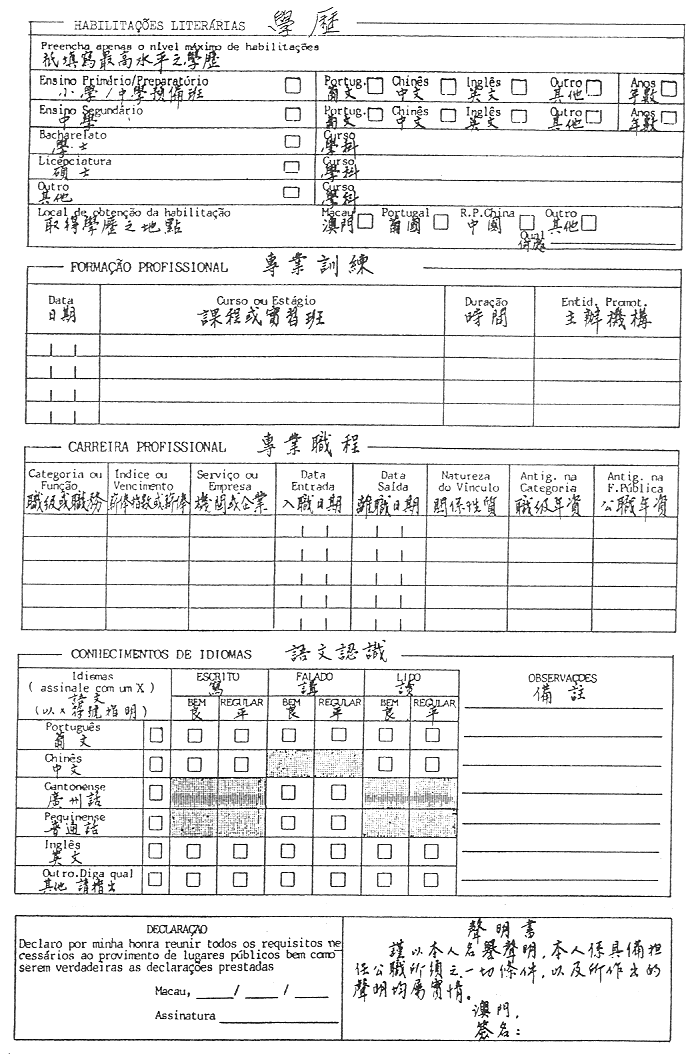 HABILITAÇÕES LITERÁRIAS 學歷
Preencha apenas o nível máximo de habilitações
祇填寫最高水平之學歷
Ensino Primário/Preparatório Portug. Chinês Inglês Outro Anos
小學/中學預備班 葡文 中文 英文 其他 年數
Ensino Segundário Portug. Chinês Inglês Outro Anos
中學 葡文 中文 英文 其他 年數
Bacharelato Curso
學士 學科
Licenciatura Curso
碩士 學科
Outro Curso
其他 學科
Local de obtenção da habilitação Macau Portugal R.P.China Outro
取得學歷之地點 澳門 葡國 中國 其他
Qual
何處
FORMAÇÃO PROFISSIONAL 專業訓練
Data Curso ou Estágio Duração Entid. Promot.
日期 課程或實習班 時間 主辦機構
CARREIRA PROFISSIONAL 專業職程
Categoria ou Indice ou Serviço ou Data Data Natureza Antig. na Antig. na
Função Vencimento Empresa Entrada Saída do Vínculo Categoria F.Pública
職級或職務 薪俸指數或薪俸 機關或企業 入職日期 離職日期 關係性質 職級年資 公職年資
CONHECIMENTOS DE IDIOMAS 語文認識
Idiomas ESCRITO FALADO LIDO OBSERVAÇÕES
( assinale com um X ) 寫 講 讀 備註
語文 BEM REGULAR BEM REGULAR BEM REGULAR
(以 x 符號指明) 良 平 良 平 良 平
Português
葡文
Chinês
中文
Cantonense
廣州話
Pequinense
普通話
Inglês
英文
Outro.Diga qual
其他 請指出
DECLARAÇÃO
Declaro por minha honra reunir todos os requisitos ne
cessários ao provimento de lugares públicos bem como
serem verdadeiras as declarações prestadas
Macau, ____/____/____
Assinatura
聲明書
謹以本人名譽聲明,本人係具備担
任公職所須之一切條件,以及所作出的
聲明均屬實情。
澳門,
簽名: